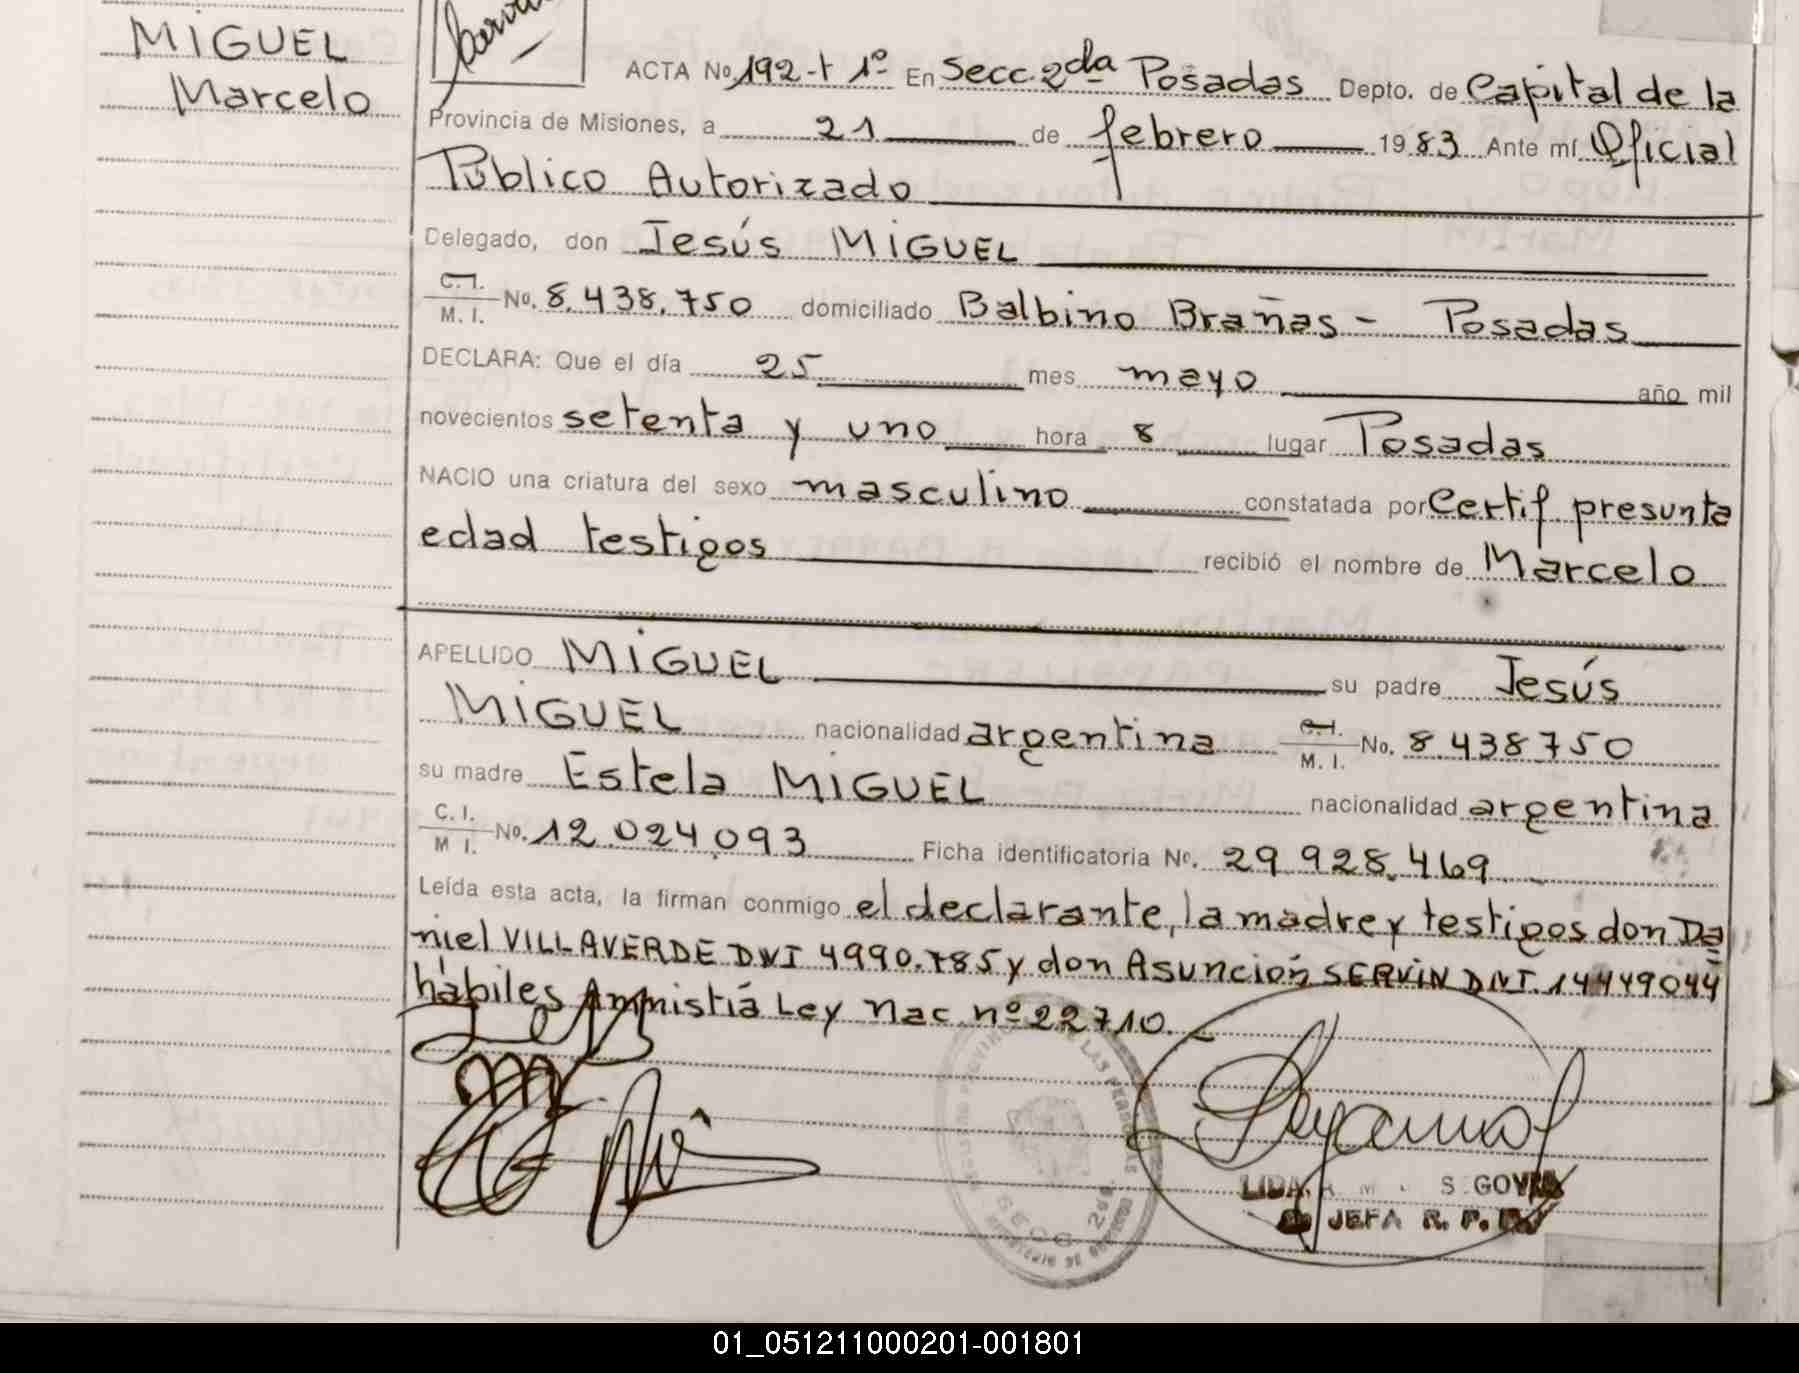 MIGUEL
Marcelo
ACTA No 192-t 1º En Secc. 2da Posadas Depto. de Capital de la
Provincia de Misiones, a 21 de febrero 1983 Ante mí Oficial
Público Autorizado
Delegado, don Jesús MIGUEL
C.I. M. I. No. 8.438.750 domiciliado Balbino Brañas - Posadas
DECLARA: Que el día 25 mes mayo año mil
novecientos setenta y uno hora 8 lugar Posadas
NACIO una criatura del sexo masculino constatada por Certif presunta
edad testigos recibió el nombre de Marcelo
APELLIDO MIGUEL su padre Jesús
MIGUEL nacionalidad argentina C.I. M. I. No. 8.438750
su madre Estela MIGUEL nacionalidad argentina
C. I. M I. No. 12.024.093 Ficha identificatoria No. 29.928.469
Leída esta acta, la firman conmigo el declarante, la madre y testigos don Da
niel VILLAVERDE DNI 4990.785 y don Asunción SERVIN DNI. 14449044
hábiles Ammistiá Ley Nac. nº 22710.
LIDA S GOVIA
JEFA R. P.
SECC 2da
01_051211000201-001801